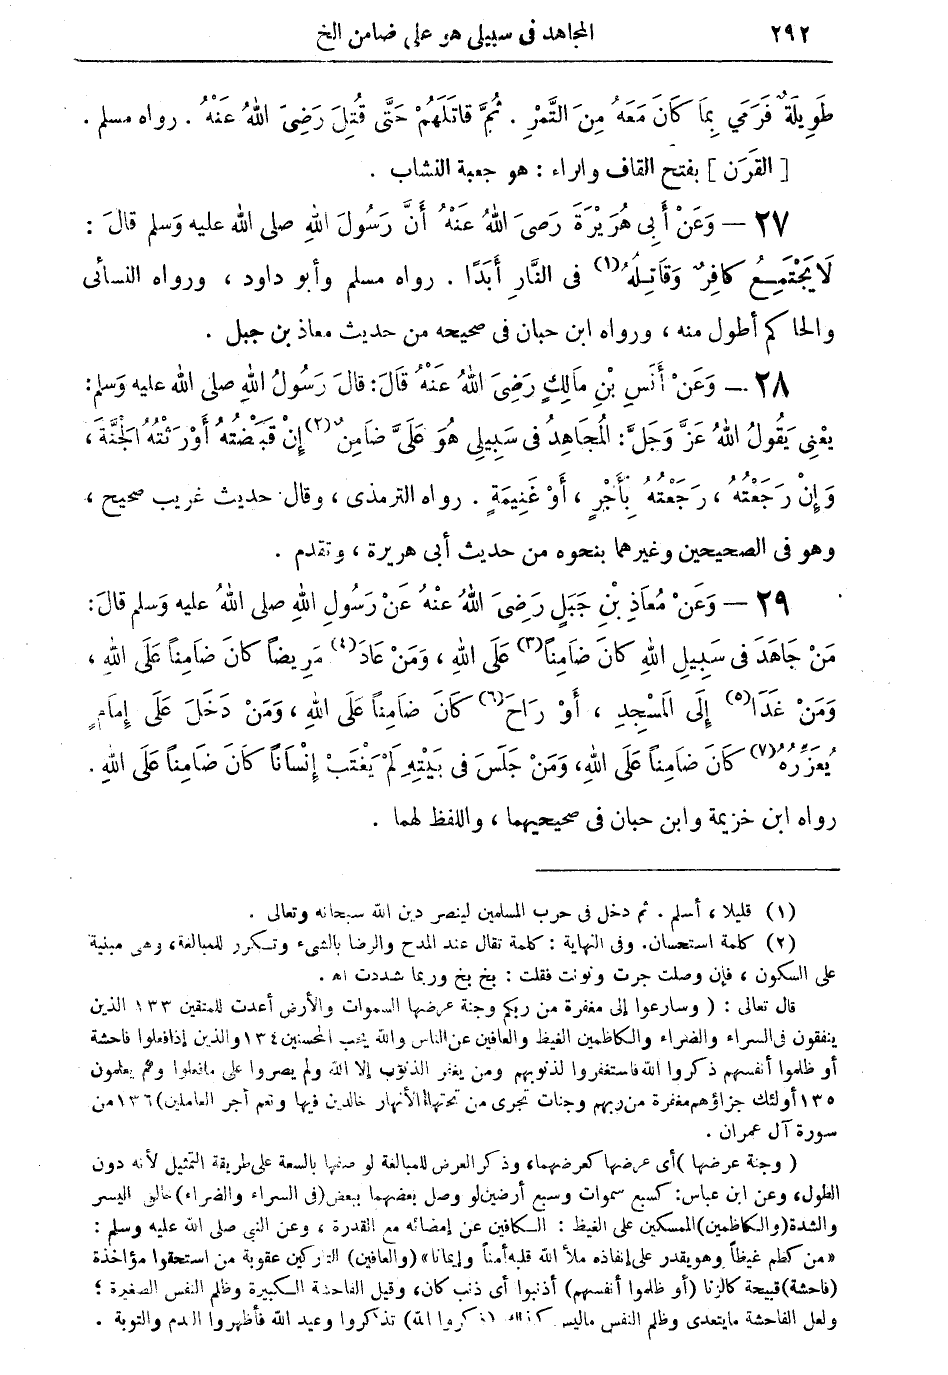 ٢٩٢ المجاهد فى سبيلى هو على ضامن الخ
طَوِيلَةٌ فَرَمَي بِمَا كَانَ مَعَهُ مِنَ التَّمْرِ . ثُمَّ قاتَلَهُمْ حَتَّى قُتِلَ رَضِىَ اللهُ عَنْهُ . رواه مسلم .
[ القَرَن ] بفتح القاف والراء : هو جعبة النشاب .
٢٧ — وَعَنْ أَبِى هُرَيْرَةَ رَضِىَ اللهُ عَنْهُ أَنَّ رَسُولَ اللهِ صلى الله عليه وَسلم قالَ :
لَا يَجْتَمِعُ كافِرٌ وَقَاتِلُهُ(١) فى النَّارِ أَبَدًا . رواه مسلم وأبو داود ، ورواه النسائى
والحاكم أطول منه ، ورواه ابن حبان فى صحيحه من حديث معاذ بن جبل .
٢٨ — وَعَنْ أَنَسِ بْنِ مَالِكٍ رَضِىَ اللهُ عَنْهُ قَالَ : قالَ رَسُولُ اللهِ صلى الله عليه وَسلم :
يعْنِى يَقُولُ اللهُ عَزَّ وَجَلَّ : المُجَاهِدُ فى سَبِيلِى هُوَ عَلَىَّ ضَامِنٌ(٢) إِنْ قَبَضْتُهُ أَوْرَثْتُهُ الجَنَّةَ ،
وَإِنْ رَجَعْتُهُ ، رَجَعْتُهُ بِأَجْرٍ ، أَوْ غَنِيمَةٍ . رواه الترمذى ، وقال حديث غريب صحيح ،
وهو فى الصحيحين وغيرهما بنحوه من حديث أبى هريرة ، وتقدم .
٢٩ — وَعَنْ مُعَاذِ بْنِ جَبَلٍ رَضِىَ اللهُ عَنْهُ عَنْ رَسُولِ اللهِ صلى اللهُ عليه وَسلم قالَ :
مَنْ جَاهَدَ فى سَبِيلِ اللهِ كانَ ضَامِناً(٣) عَلَى اللهِ ، وَمَنْ عَادَ(٤) مَرِيضاً كانَ ضَامِناً عَلَى اللهِ ،
وَمَنْ غَدَا(٥) إِلَى المَسْجِدِ ، أَوْ رَاحَ(٦) كَانَ ضَامِناً عَلَى اللهِ ، وَمَنْ دَخَلَ عَلَى إِمَامٍ
يُعَزِّرُهُ(٧) كَانَ ضَامِناً عَلَى اللهِ ، وَمَنْ جَلَسَ فى بَيْتِهِ لَمْ يَغْتَبْ إِنْسَانًا كَانَ ضَامِناً عَلَى اللهِ .
رواه ابن خزيمة وابن حبان فى صحيحيهما ، واللفظ لهما .
(١) قليلا ، أسلم . ثم دخل فى حرب المسلمين لينصر دين الله سبحانه وتعالى .
(٢) كلمة استحسان. وفى النهاية : كلمة تقال عند المدح والرضا بالشىء وتكرر للمبالغة ، وهى مبنية
على السكون ، فإن وصلت جرت ونونت فقلت : بخ بخ وربما شددت اهـ .
قال تعالى : ( وسارعوا إلى مغفرة من ربكم وجنة عرضها السموات والأرض أعدت للمتقين ١٣٣ الذين
ينفقون فى السراء والضراء والكاظمين الغيظ والعافين عن الناس والله يحب المحسنين ١٣٤ والذين إذا فعلوا فاحشة
أو ظلموا أنفسهم ذكروا الله فاستغفروا لذنوبهم ومن يغفر الذنوب إلا الله ولم يصروا على مافعلوا وهم يعلمون
١٣٥ أولئك جزاؤهم مغفرة من ربهم وجنات تجرى من تحتها الأنهار خالدين فيها ونعم أجر العاملين ) ١٣٦ من
سورة آل عمران .
( وجنة عرضها ) أى عرضها كعرضهما، وذكر العرض للمبالغة لو صفها بالسعة على طريقة التمثيل لأنه دون
الطول، وعن ابن عباس: كسبع سموات وسبع أرضين لو وصل بعضهما ببعض (فى السراء والضراء) حالتى اليسر
والشدة (والكاظمين) الممسكين على الغيظ : الكافين عن إمضائه مع القدرة ، وعن النبى صلى الله عليه وسلم :
«من كظم غيظاً وهو يقدر على إنفاذه ملأ الله قلبه أمناً وإيمانا» (والعافين) التاركين عقوبة من استحقوا مؤاخذة
(فاحشة) قبيحة كالزنا (أو ظلموا أنفسهم) أذنبوا أى ذنب كان، وقيل الفاحشة الكبيرة وظلم النفس الصغيرة ؛
ولعل الفاحشة مايتعدى وظلم النفس ماليس كذلك (ذكروا الله) تذكروا وعيد الله فأظهروا الندم والتوبة .